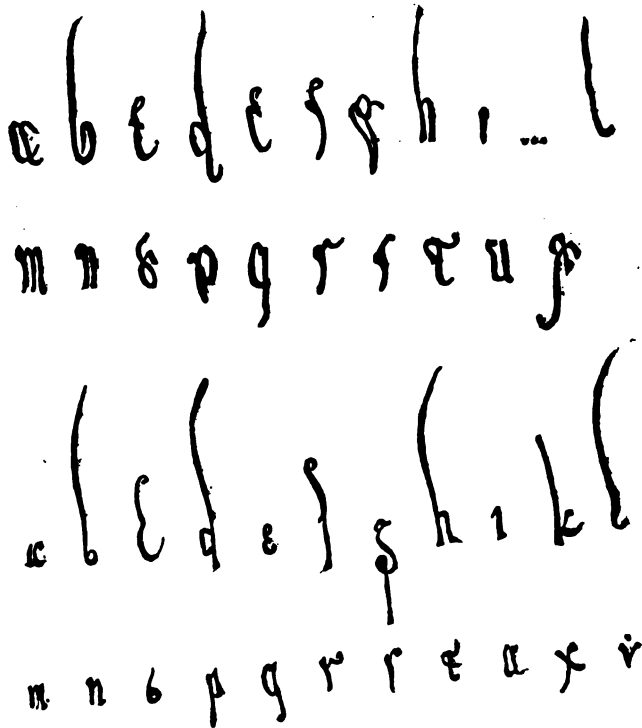 a b c d e f g h i ... l
m n o p q r ſ t u x
a b c d e f g h i k l
m n o p q r ſ t u x ẏ